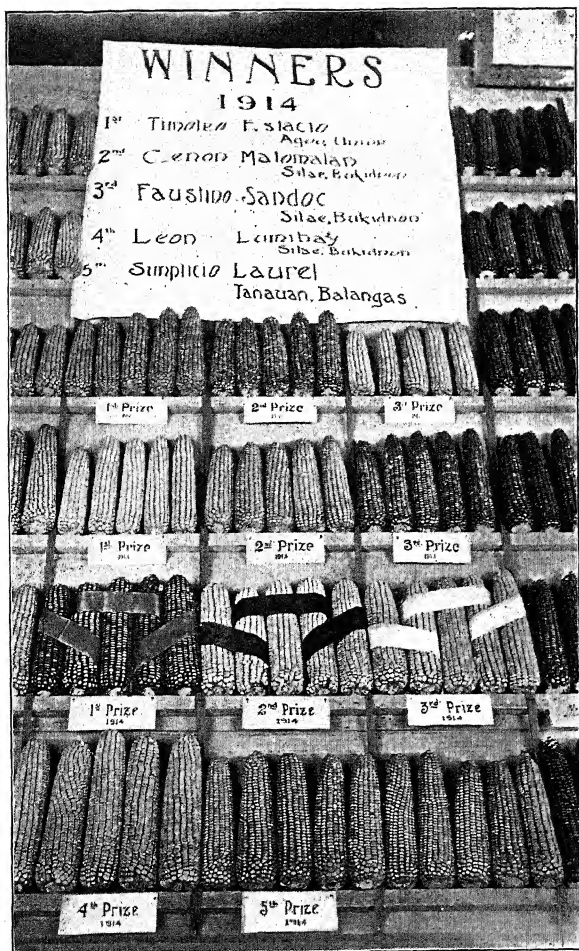 WINNERS
1914
1st Timoteo Estacio
Agoo, Union
2nd Cenon Malomalan
Silae, Bukidnon
3rd Faustino Sandoc
Silae, Bukidnon
4th Leon Lumibay
Silae, Bukidnon
5th Simplicio Laurel
Tanauan, Batangas
1st Prize
2nd Prize
3rd Prize
1st Prize
2nd Prize
3rd Prize
1st Prize
1914
2nd Prize
1914
3rd Prize
1914
4th Prize
1914
5th Prize
1914